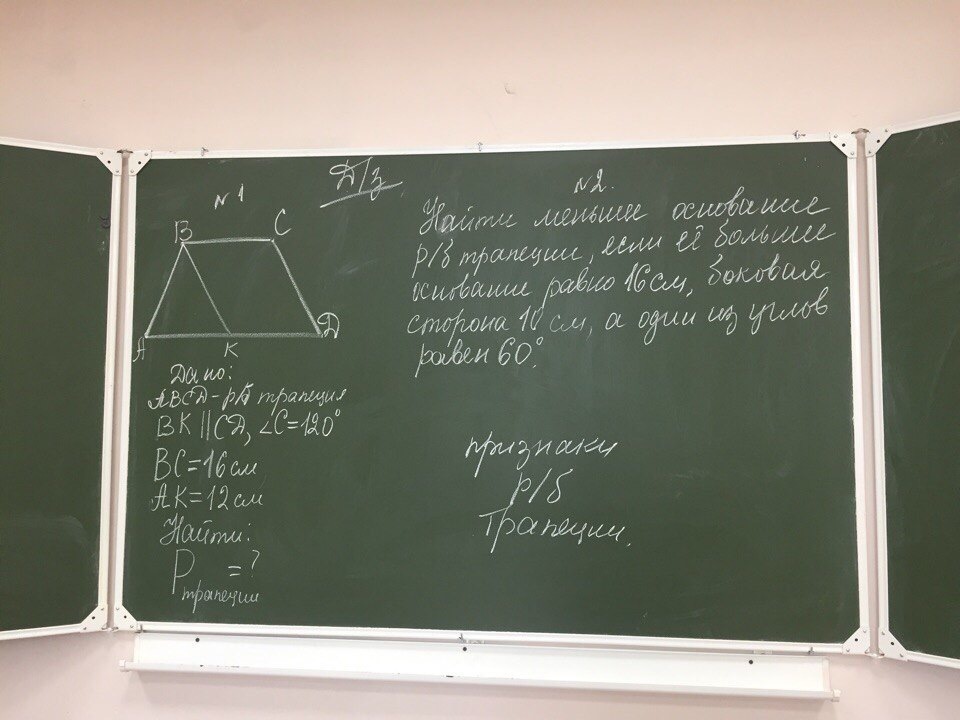 Д/з
№1
B C
A K D
Дано:
ABCD - р/б трапеция
BK || CD, ∠C = 120°
BC = 16 см
AK = 12 см
Найти:
P трапеции = ?
№2.
Найти меньшее основание
р/б трапеции, если её большее
основание равно 16 см, боковая
сторона 10 см, а один из углов
равен 60°.
признаки
р/б
трапеции.